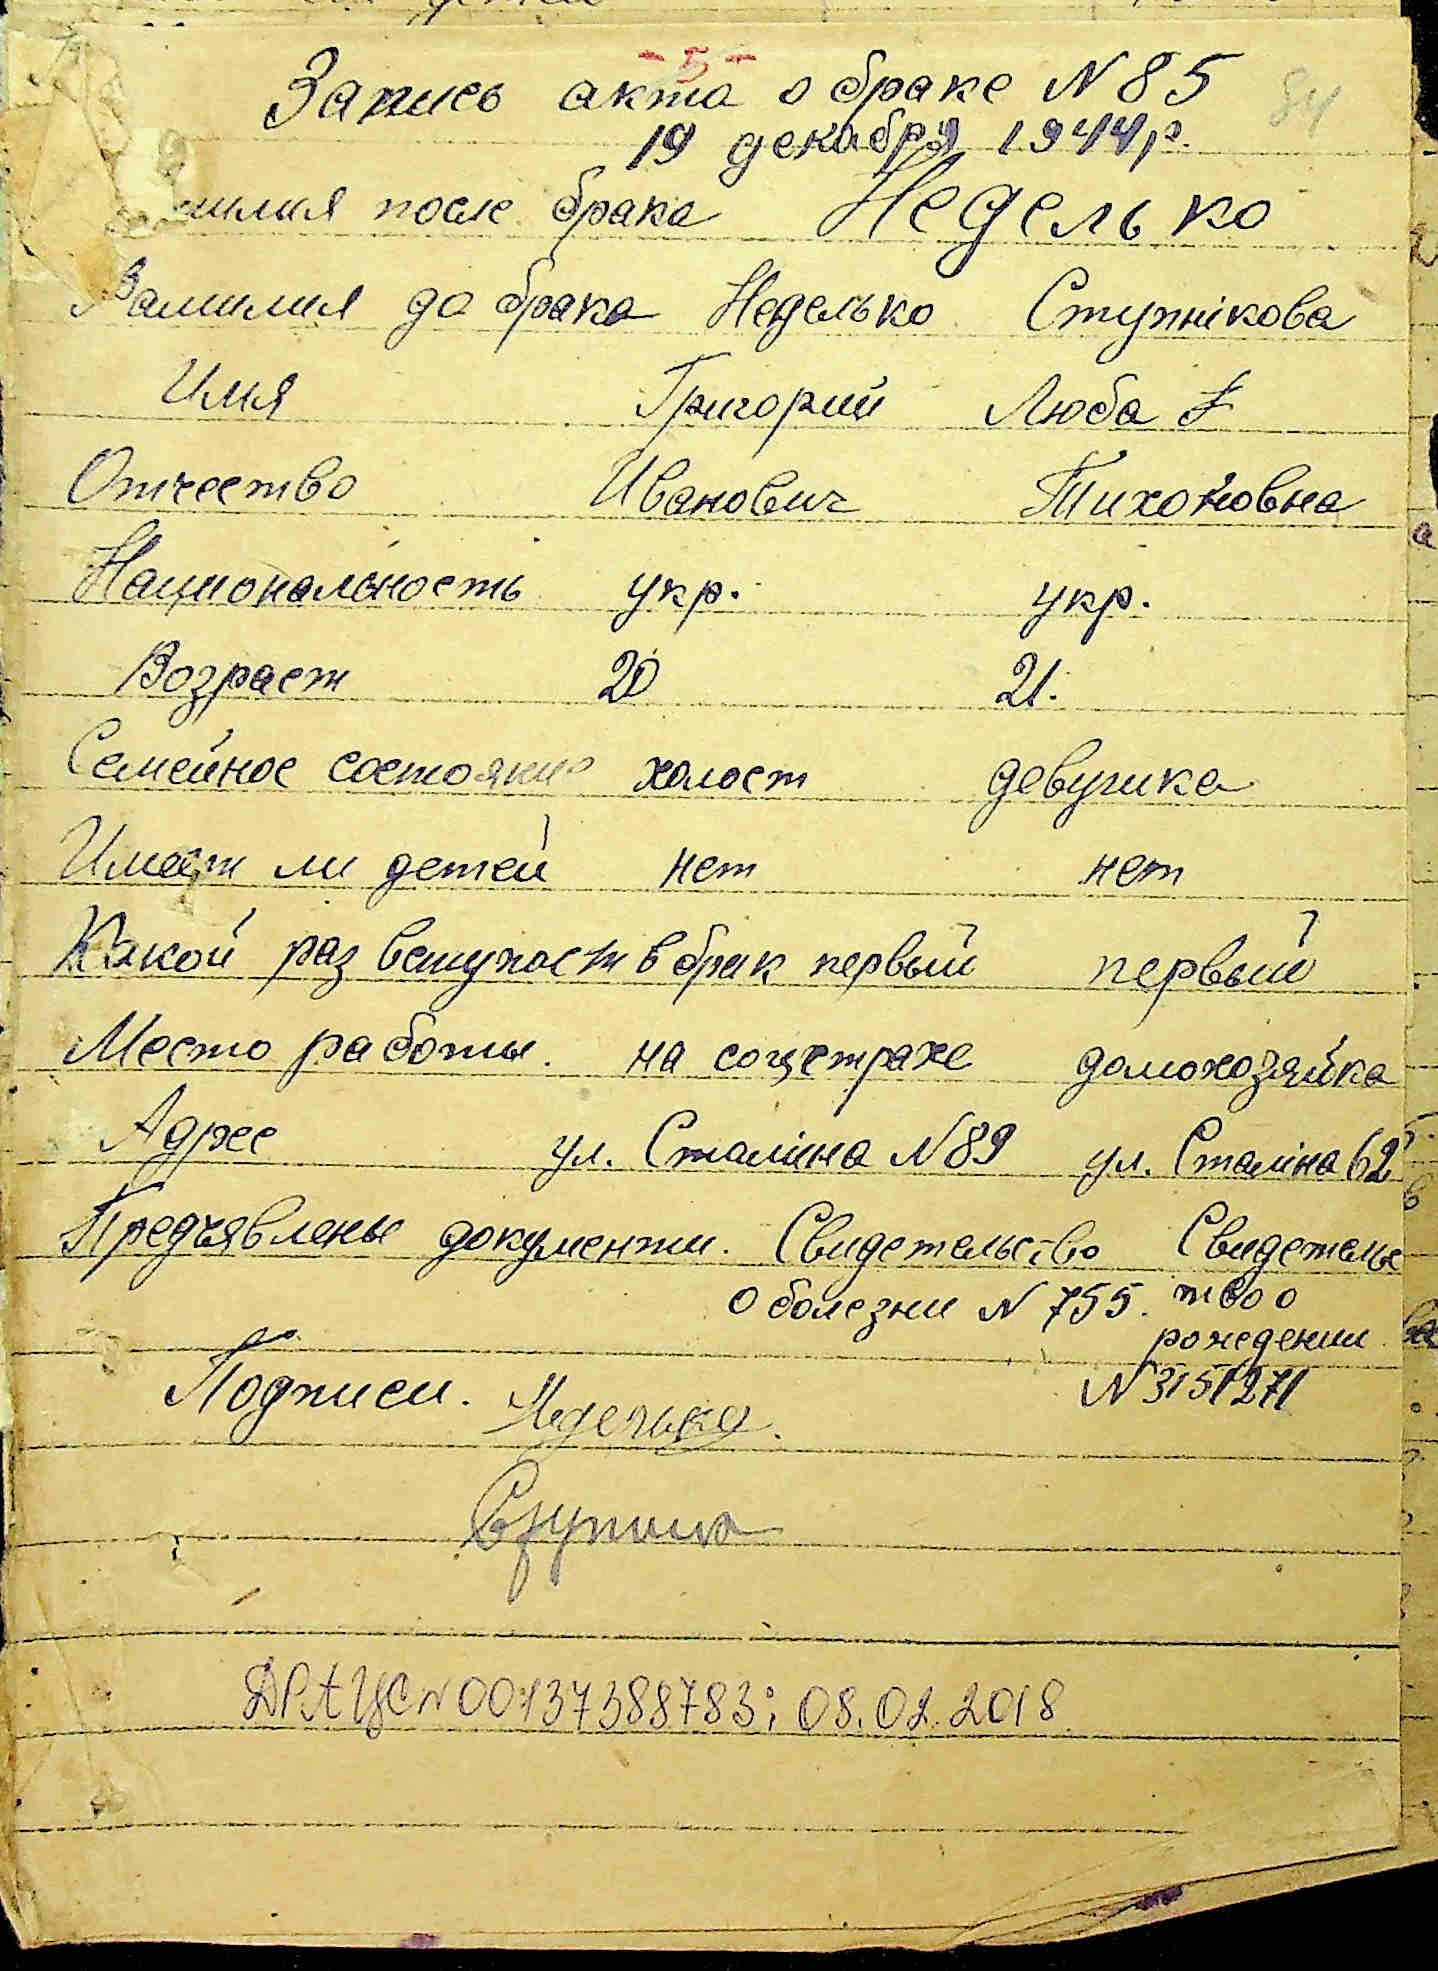 - 5 -
Запись акта о браке N 85
84
19 декабря 1944 р.
милия после брака Неделько
Фамилия до брака Неделько Ступнікова
Имя Григорий Люба
Отчество Иванович Тихоновна
Национальность укр. укр.
Возраст 20 21.
Семейное состояние холост девушка
Имеет ли детей нет нет
Какой раз вступает в брак первый первый
Место работы. на соцстрахе домохозяйка
Адрес ул. Сталіна N 89 ул. Сталіна 62
Предъявлены документы. Свидетельство Свидетельс
о болезни N 755. тво о
рождении
Подписи. Неделько. N 3151271
Ступніко
ДРАЦС N 00137388783; 08.02.2018